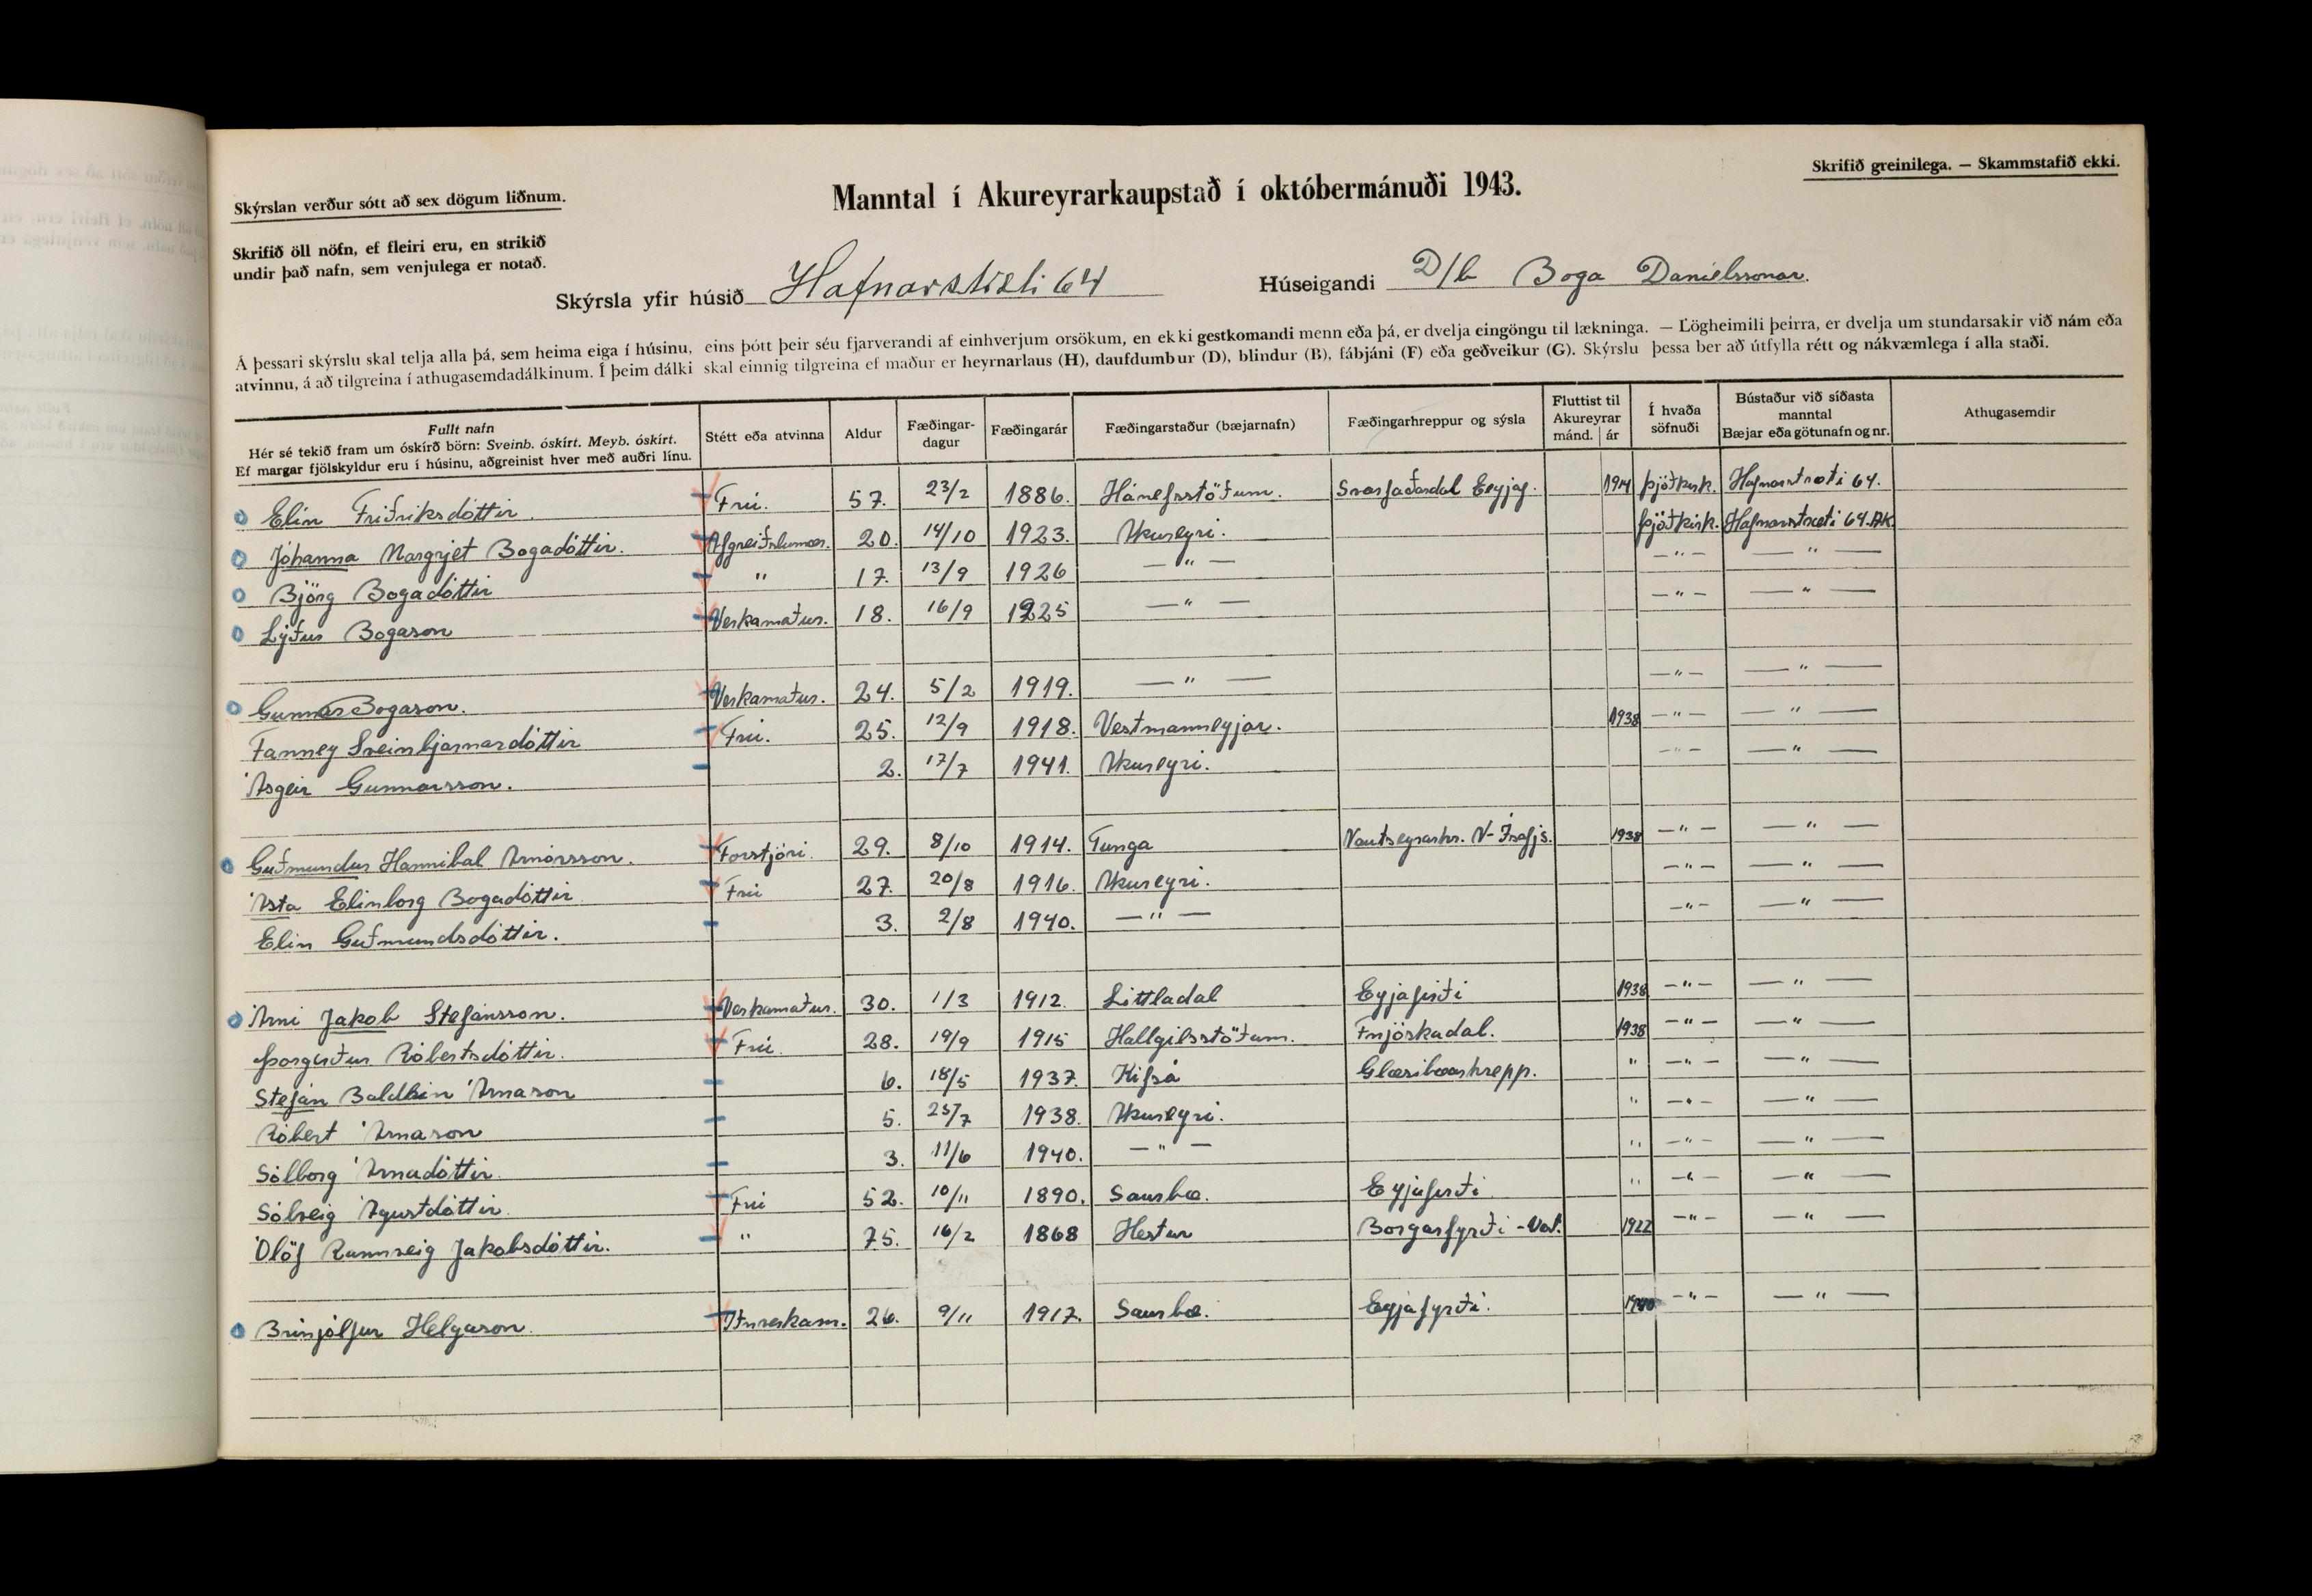 Skrifið greinilega. — Skammstafið ekki.
Skýrslan verður sótt að sex dögum liðnum.
Manntal í Akureyrarkaupstað í októbermánuði 1943.
Skrifið öll nöfn, ef fleiri eru, en strikið
undir það nafn, sem venjulega er notað.
Skýrsla yfir húsið Hafnarstræti 64 Húseigandi D/b Boga Daníelssonar.
Á þessari skýrslu skal telja alla þá, sem heima eiga í húsinu, eins þótt þeir séu fjarverandi af einhverjum orsökum, en ekki gestkomandi menn eða þá, er dvelja eingöngu til lækninga. — Lögheimili þeirra, er dvelja um stundarsakir við nám eða
atvinnu, á að tilgreina í athugasemdadálkinum. Í þeim dálki skal einnig tilgreina ef maður er heyrnarlaus (H), daufdumbur (D), blindur (B), fábjáni (F) eða geðveikur (G). Skýrslu þessa ber að útfylla rétt og nákvæmlega í alla staði.
Fullt nafn
Hér sé tekið fram um óskírð börn: Sveinb. óskírt. Meyb. óskírt.
Ef margar fjölskyldur eru í húsinu, aðgreinist hver með auðri línu.
Stétt eða atvinna
Aldur
Fæðingar-
dagur
Fæðingarár
Fæðingarstaður (bæjarnafn)
Fæðingarhreppur og sýsla
Fluttist til
Akureyrar
mánd. ár
Í hvaða
söfnuði
Bústaður við síðasta
manntal
Bæjar eða götunafn og nr.
Athugasemdir
Elín Friðriksdóttir. Frú. 57. 23/2 1886. Hánefsstöðum. Svarfaðardal Eyjaf. 1914 þjóðkirk. Hafnarstræti 64.
Jóhanna Margrjet Bogadóttir. Afgreiðslumær. 20. 14/10 1923. Akureyri. þjóðkirk. Hafnarstræti 64. AK.
Björg Bogadóttir " 17. 13/9 1926 — " — — " — — " —
Lýður Bogason Verkamaður. 18. 16/9 1925 — " — — " — — " —
Gunnar Bogason. Verkamaður. 24. 5/2 1919. — " — — " — — " —
Fanney Sveinbjarnardóttir Frú. 25. 12/9 1918. Vestmanneyjar. 1938 — " — — " —
Ásgeir Gunnarsson. 2. 17/7 1941. Akureyri. — " — — " —
Guðmundur Hannibal Arnórsson. Forstjóri. 29. 8/10 1914. Tunga Nauteyrarhr. N-Ísafjs. 1938 — " — — " —
Ásta Elinborg Bogadóttir Frú 27. 20/8 1916. Akureyri. — " — — " —
Elín Guðmundsdóttir. 3. 2/8 1940. — " — — " — — " —
Árni Jakob Stefánsson. Verkamaður. 30. 1/3 1912. Littladal Eyjafirði 1938 — " — — " —
Þorgerður Róbertsdóttir. Frú. 28. 19/9 1915 Hallgilsstöðum. Fnjóskadal. 1938 — " — — " —
Stefán Baldvin Árnason 6. 18/5 1937. Kífsá Glæsibæarhrepp. " — " — — " —
Róbert Árnason 5. 25/7 1938. Akureyri. " — " — — " —
Sólborg Árnadóttir. 3. 11/6 1940. — " — " — " — — " —
Sólveig Ágústdóttir. Frú 52. 10/11 1890. Saurbæ. Eyjafirði " — " — — " —
Ólöf Rannveig Jakobsdóttir. " 75. 16/2 1868 Hestur Borgarfyrði - 1922 — " — — " —
Brinjólfur Helgason. Iðnverkam. 26. 9/11 1917. Saurbæ. Eyjafyrði. 1940 — " — — " —